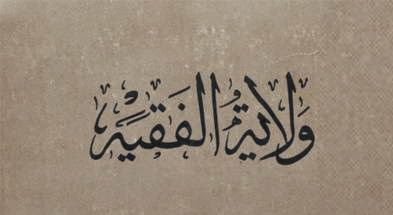 وَلاية الفَقيِّه